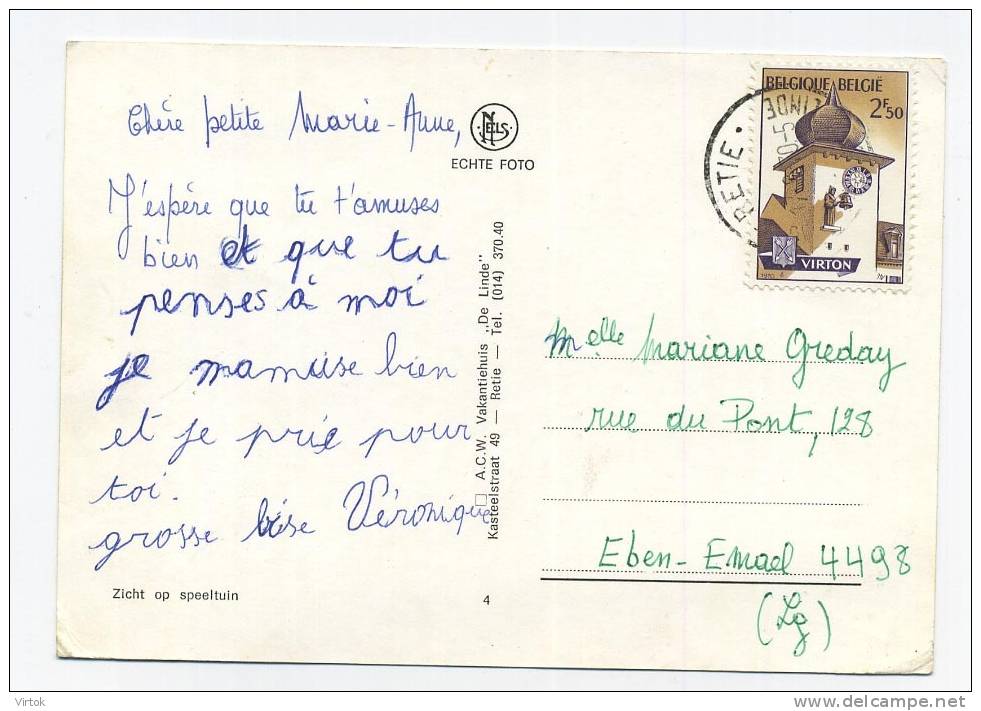 Chère petite Marie-Anne,
J'espère que tu t'amuses
bien et que tu
penses à moi
je mamuse bien
et je prie pour
toi.
grosse bise Véronique
Zicht op speeltuin
NELS
ECHTE FOTO
A.C.W. Vakantiehuis „De Linde"
Kasteelstraat 49 — Retie — Tel. (014) 370.40
4
RETIE
BELGIQUE BELGIË
2F50
VIRTON
1970
Melle Mariane Greday
rue du Pont, 128
Eben-Emael 4498
(Lg)
Virtok
www.delcampe.net